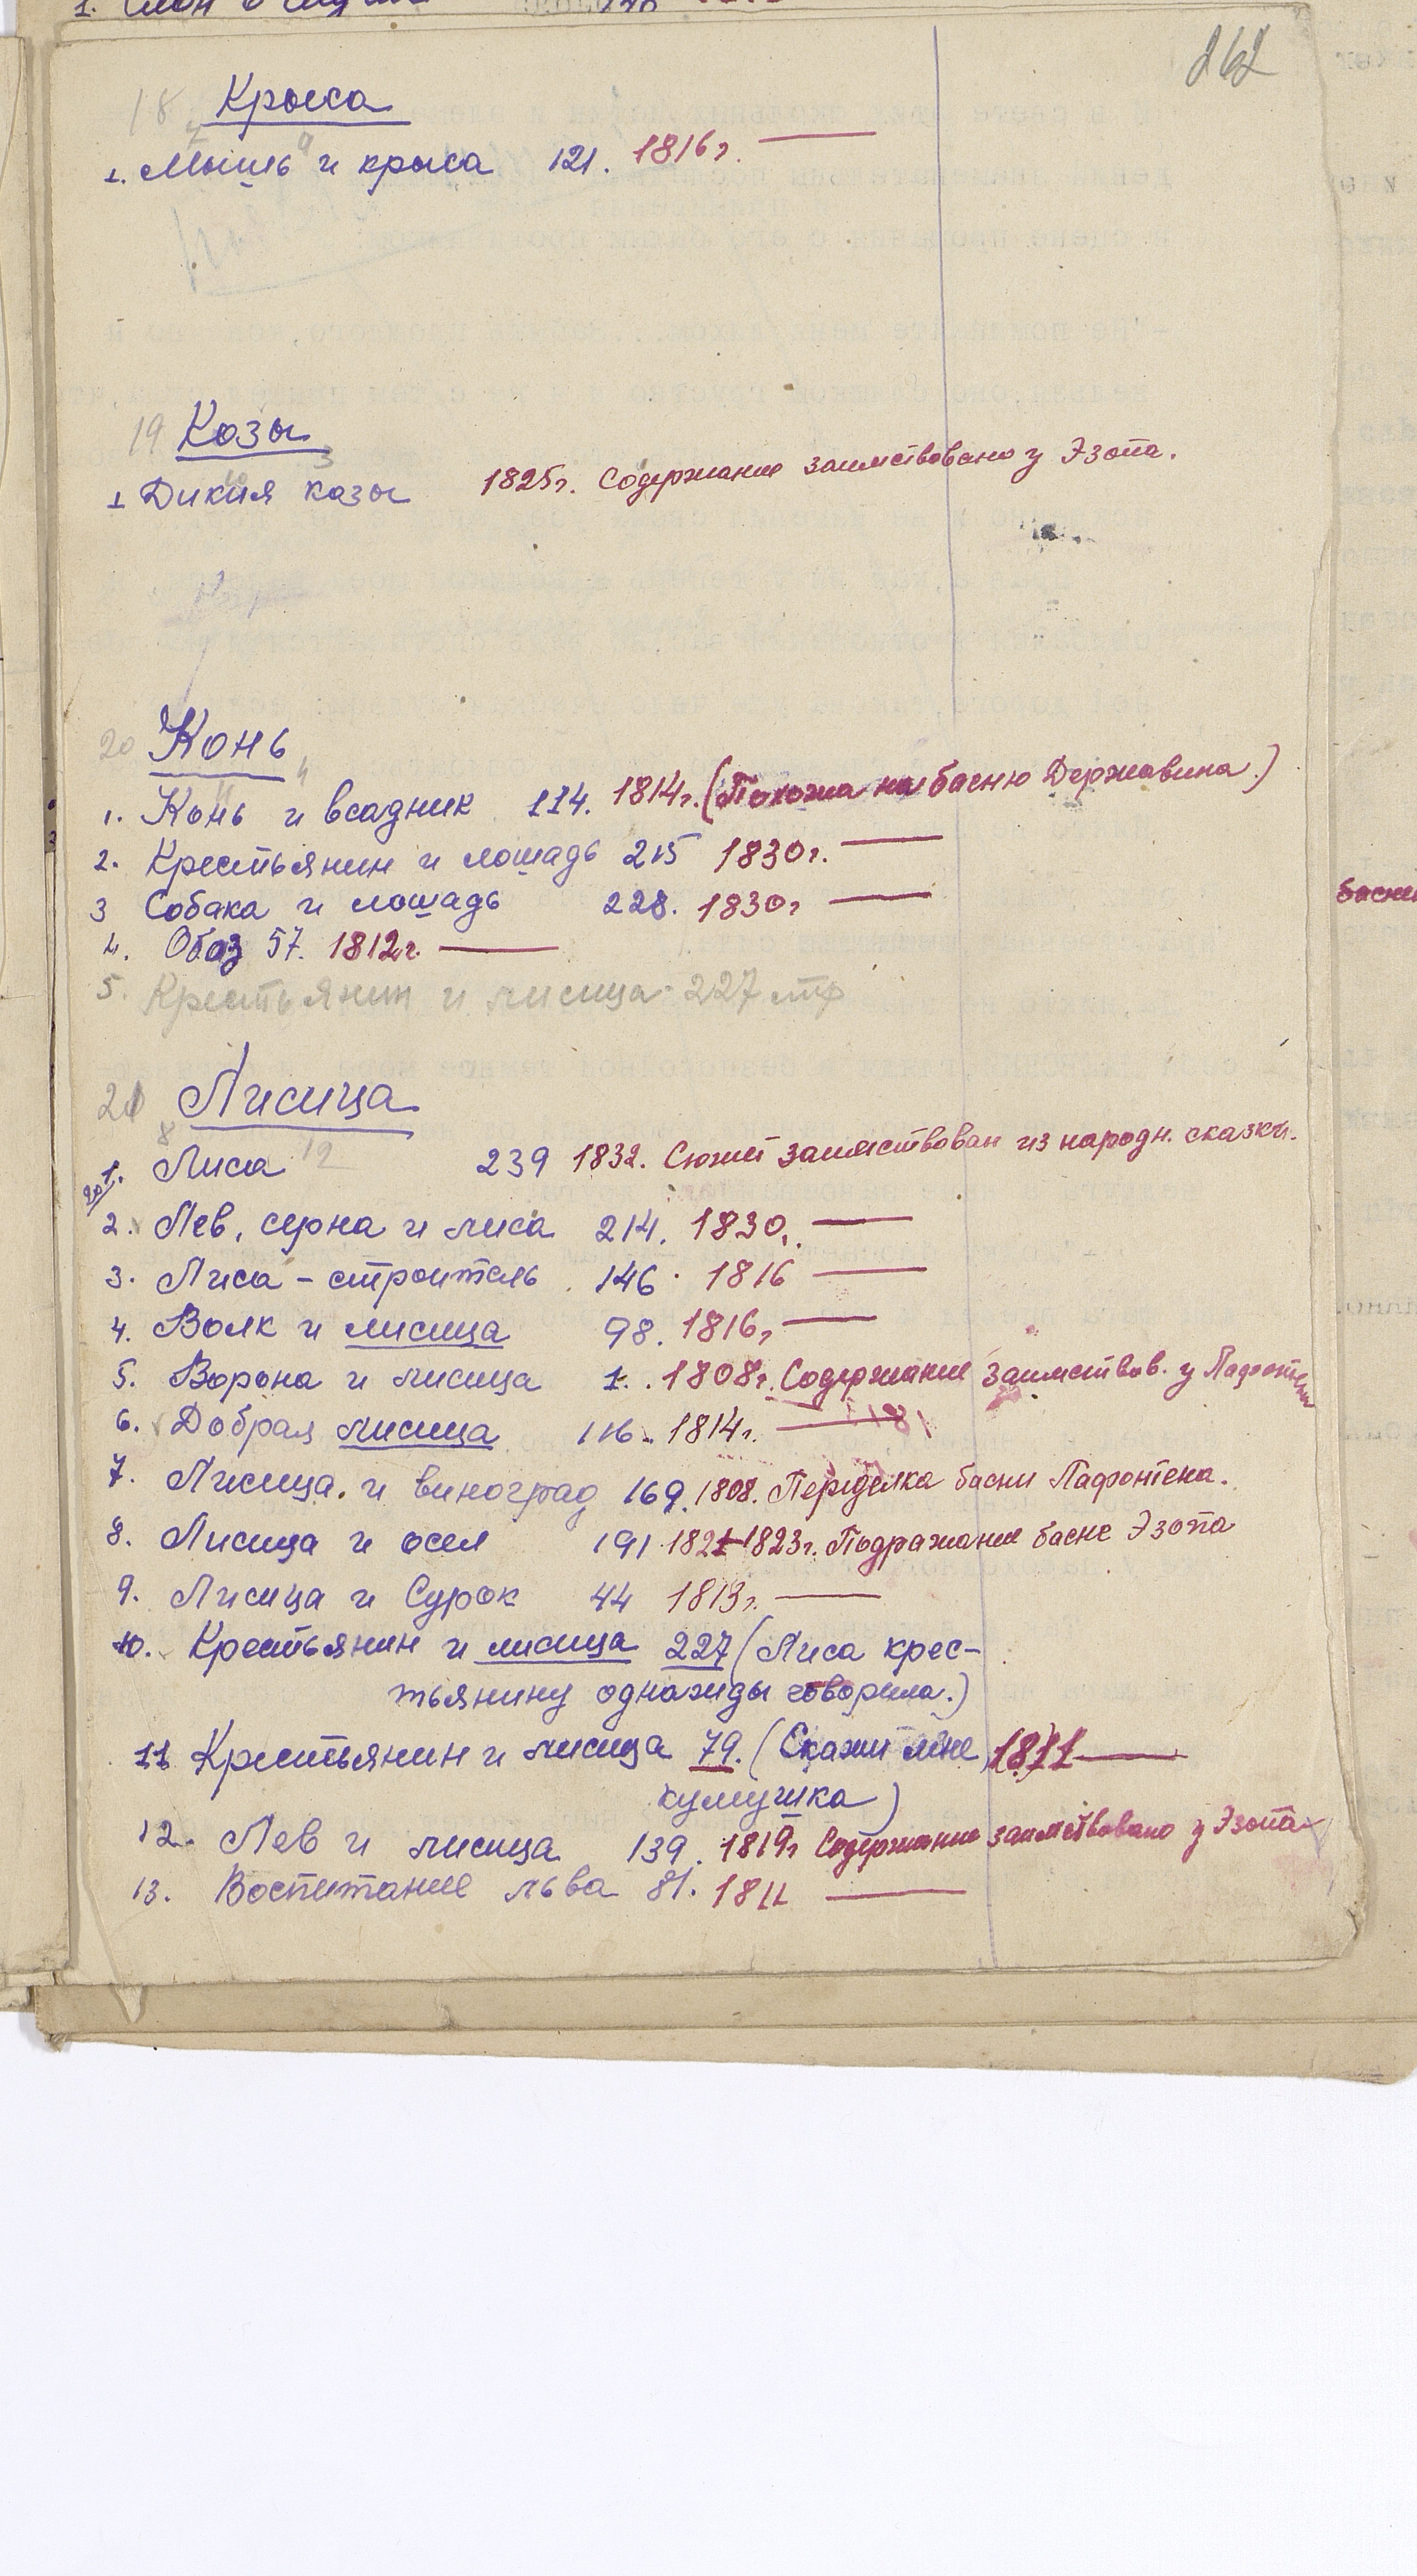 262
18 Крыса
1. Мышь и крыса 121. 1816г. —
19 Козы
1 Дикия козы 1825г. Содержание заимствовано у Эзопа.
20 Конь
1. Конь и всадник 114. 1814г. (Похожа на басню Державина.)
2. Крестьянин и лошадь 215 1830г. —
3 Собака и лошадь 228. 1830г —
4. Обоз 57. 1812г. —
5. Крестьянин и лисица 227 стр
21 Лисица
1. Лиса 12 239 1832. Сюжет заимствован из народн. сказки.
2. Лев, серна и лиса 214. 1830. —
3. Лиса – строитель 146. 1816 —
4. Волк и лисица 98. 1816г —
5. Ворона и лисица 1. 1808г. Содержание заимствов. у Лафонтена
6. Добрая лисица 116. 1814г. —
7. Лисица и виноград 169. 1808. Переделка басни Лафонтена.
8. Лисица и осел 191 1821-1823г. Подражание басне Эзопа
9. Лисица и Сурок 44 1813г. —
10. Крестьянин и лисица 227 (Лиса крес-
тьянину однажды говорила.)
11 Крестьянин и лисица 79. (Скажи мне 1811 —
кумушка)
12. Лев и лисица 139. 1819г Содержание заимствовано у Эзопа
13. Воспитание льва 81. 1811 —